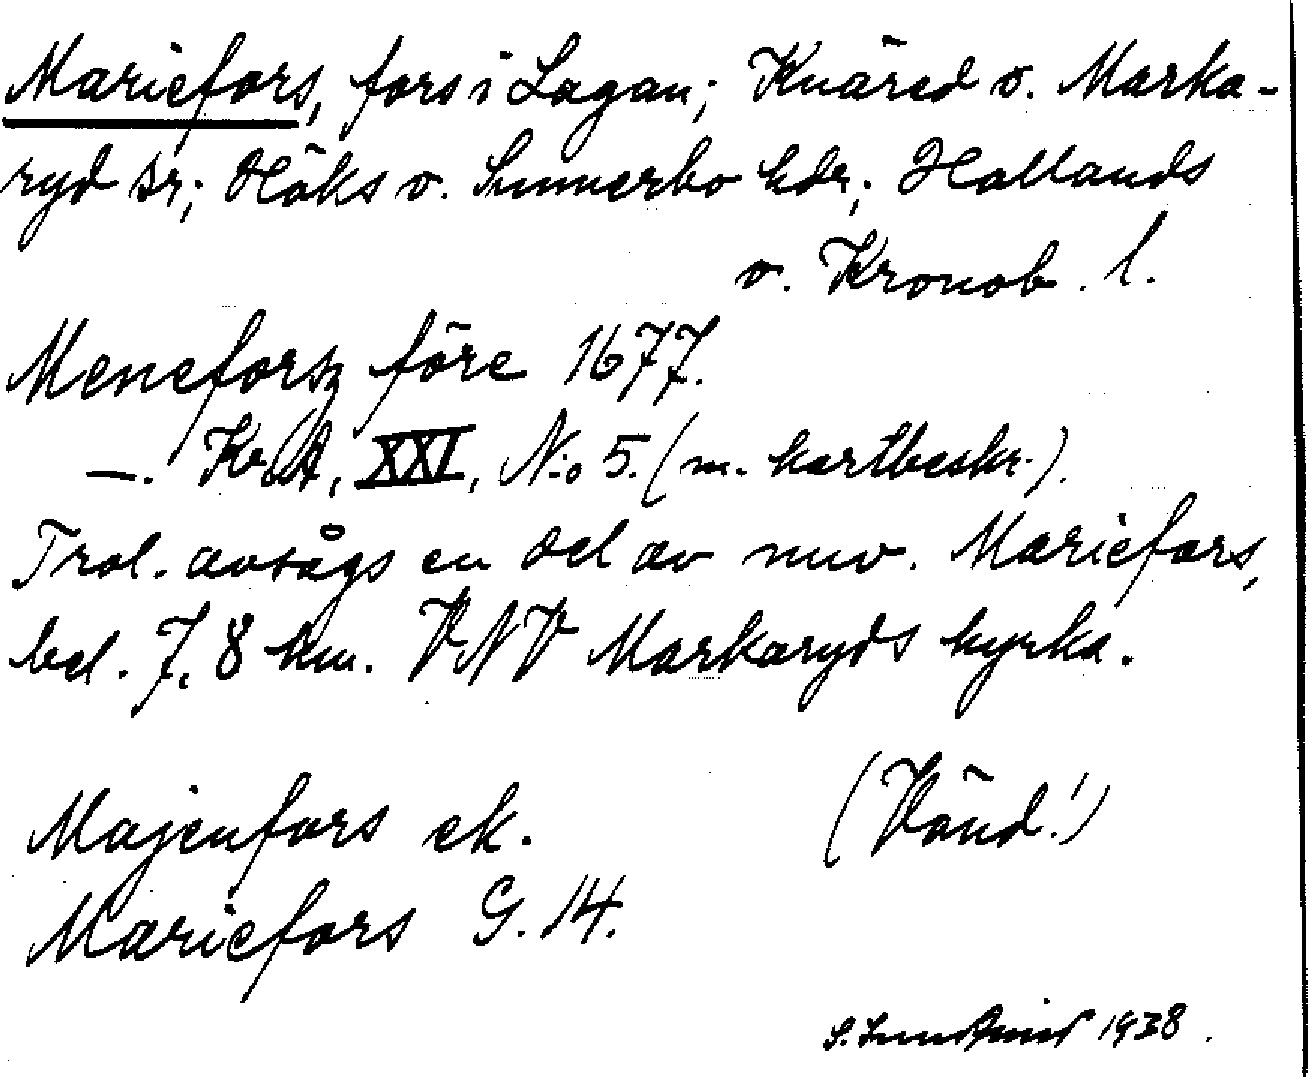 Mariefors, fors i Lagan; Knäred o. Marka-
ryd sn; Höks o. Sunnerbo hdr; Hallands
o. Kronob. l.
Meneforsz före 1677.
—. KrA, XXI, N:o 5. (m. kartbeskr.).
Trol. avsågs en del av nuv. Mariefors,
bel. 7,8 km. VNV Markaryds kyrka.
(Vänd!)
Majenfors ek.
Mariefors G. 14.
S. 1938.